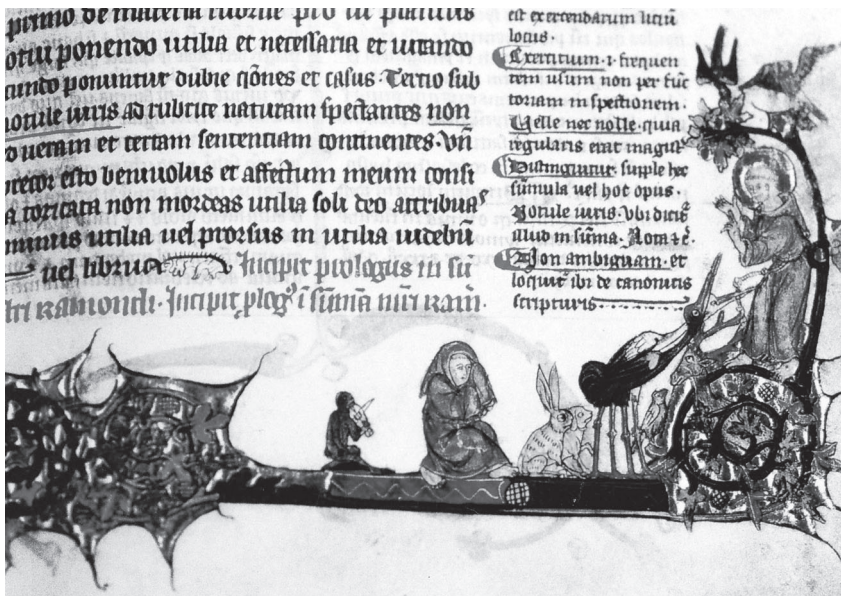 primo de materia rubrice pro ut plenius
ponendo utilia et necessaria et vitando
cundo ponuntur dubie qōnes et casus. Tertio sub
notule iuris ad rubrice naturam spectantes non
veram et certam sententiam continentes. Vn̄
precor esto benivolus et affectum meum consi
non mordeas utilia soli deo attribua
minus utilia vel prorsus in utilia videbū
vel librum Incipit prologus in sū
tri Ramondi. Incipit plog9 ī sūma nr̄i Ram.
est exercendarum litiū
locus.
Exercitium .i. frequen
tem usum non per fūc
toriam inspectionem.
Velle nec nolle. quia
regularis erat
Distinguitur. supple hec
sūmula vel hoc opus.
Notule iuris. Vbi dicit
illud in sūma.
Non ambiguam. et
loquit ibi de canonicis
scripturis